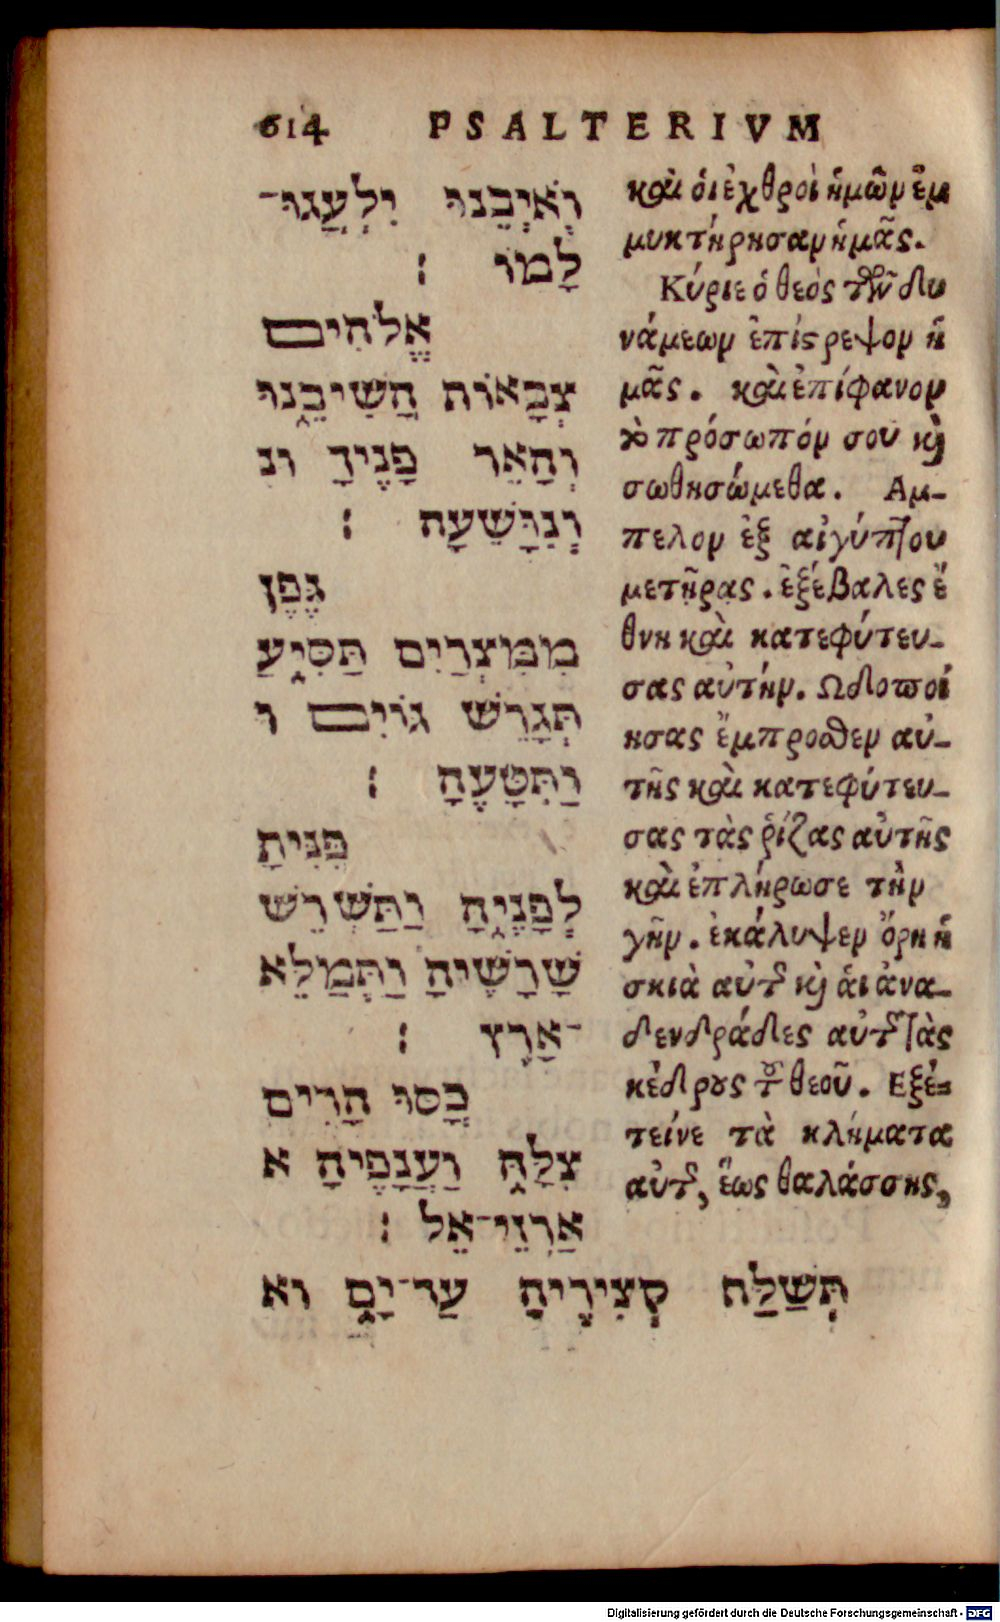 614 PSALTERIVM
וְאֹיְבֵינוּ יִלְעֲגוּ־
לָמוֹ :
אֱלֹהִים
צְבָאוֹת הֲשִׁיבֵנוּ
וְהָאֵר פָּנֶיךָ ונ
וְנִוָּשֵׁעָה :
גֶּפֶן
מִמִּצְרַיִם תַּסִּיעַ
תְּגָרֵשׁ גּוֹיִם ו
וַתִּטָּעֶהָ :
פִּנִּיתָ
לְפָנֶיהָ וַתַּשְׁרֵשׁ
שָׁרָשֶׁיהָ וַתְּמַלֵּא
־אָרֶץ :
כָּסּוּ הָרִים
צִלָּהּ וַעֲנָפֶיהָ א
אַרְזֵי־אֵל :
תְּשַׁלַּח קְצִירֶיהָ עַד־יָם וא
καὶ ὁι ἐχθροὶ ἡμῶν ἐμ
μυκτήρησαν ἡμᾶς.
Κύριε ὁ θεὸς τῶν δυ
νάμεων ἐπίςρεψον ἡ
μᾶς. καὶ ἐπίφανον
τὸ πρόσωπόν σου κὶ
σωθησώμεθα. Αμ-
πελον ἐξ αἰγύπτου
μετῆρας. ἐξέβαλες ἔ
θνη καὶ κατεφύτευ-
σας αὐτήν. Ωδοποί
ησας ἔμπροσθεν αὐ-
τῆς καὶ κατεφύτευ-
σας τὰς ῥίζας αὐτῆς
καὶ ἐπλήρωσε τὴν
γῆν. ἐκάλυψεν ὄρη ἡ
σκιὰ αὐτῆς κὶ ἁι ἀνα-
δενδράδες αὐτῆς τὰς
κέδρους τοῦ θεοῦ. Εξέ-
τεινε τὰ κλήματα
αὐτῆς, ἕως θαλάσσης,
Digitalisierung gefördert durch die Deutsche Forschungsgemeinschaft - DFG